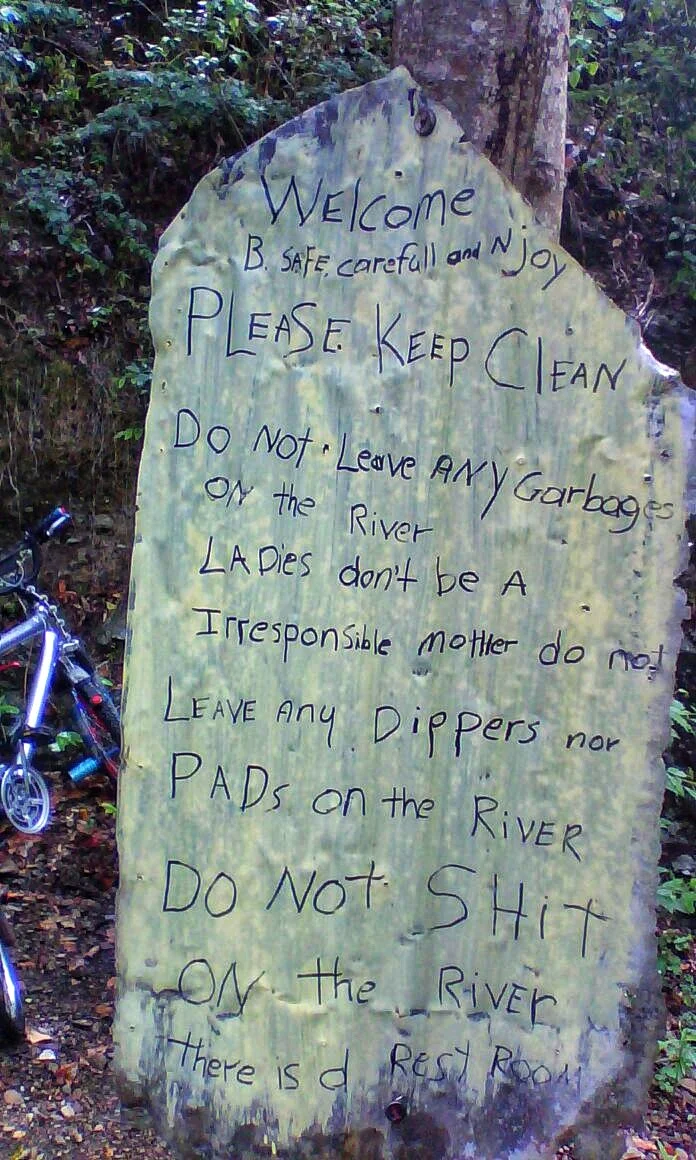 Welcome
B. SAFE, carefull and Njoy
PLEASE KEEP CLEAN
DO NOT. Leave ANY Garbages
ON the River
LADies don't be A
Irresponsible mother do not
LEAVE Any Dippers nor
PADs on the RiVER
DO NOT SHiT
ON the RiVEr
there is d REST ROOM